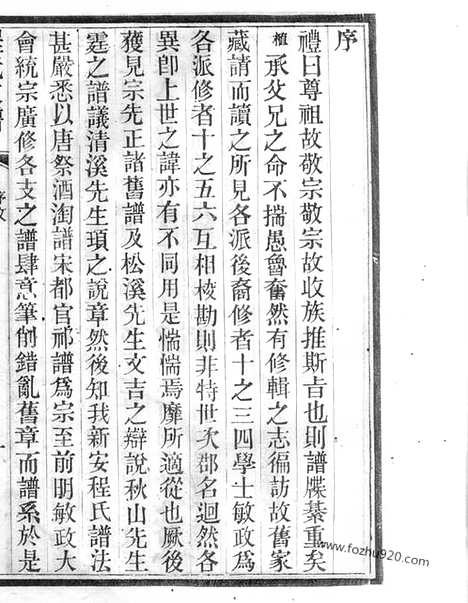 序
禮曰尊祖故敬宗敬宗故收族推斯旨也則譜牒綦重矣
植承父兄之命不揣愚魯奮然有修輯之志徧訪故舊家
藏請而讀之所見各派後裔修者十之三四學士敏政爲
各派修者十之五六互相棱勘則非特世次郡名迥然各
異卽上世之諱亦有不同用是惴惴焉靡所適從也厥後
獲見宗先正諸舊譜及松溪先生文吉之辯說秋山先生
霆之譜議清溪先生頊之說章然後知我新安程氏譜法
甚嚴悉以唐祭酒淘譜宋都官祁譜爲宗至前明敏政大
會統宗廣修各支之譜肆意筆削錯亂舊章而譜系於是
序文
一
www.fozhu920.com